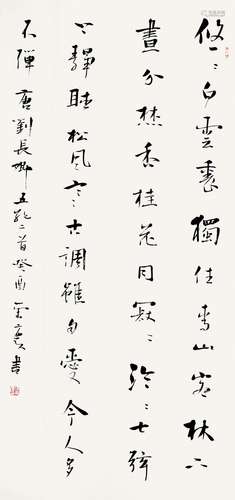 悠〻白雲裏獨住青山客林下
晝分焚香桂花同寂〻泠〻七弦
上靜聽松風寒古調雖自愛今人多
不彈 唐劉長卿五絕二首癸酉書